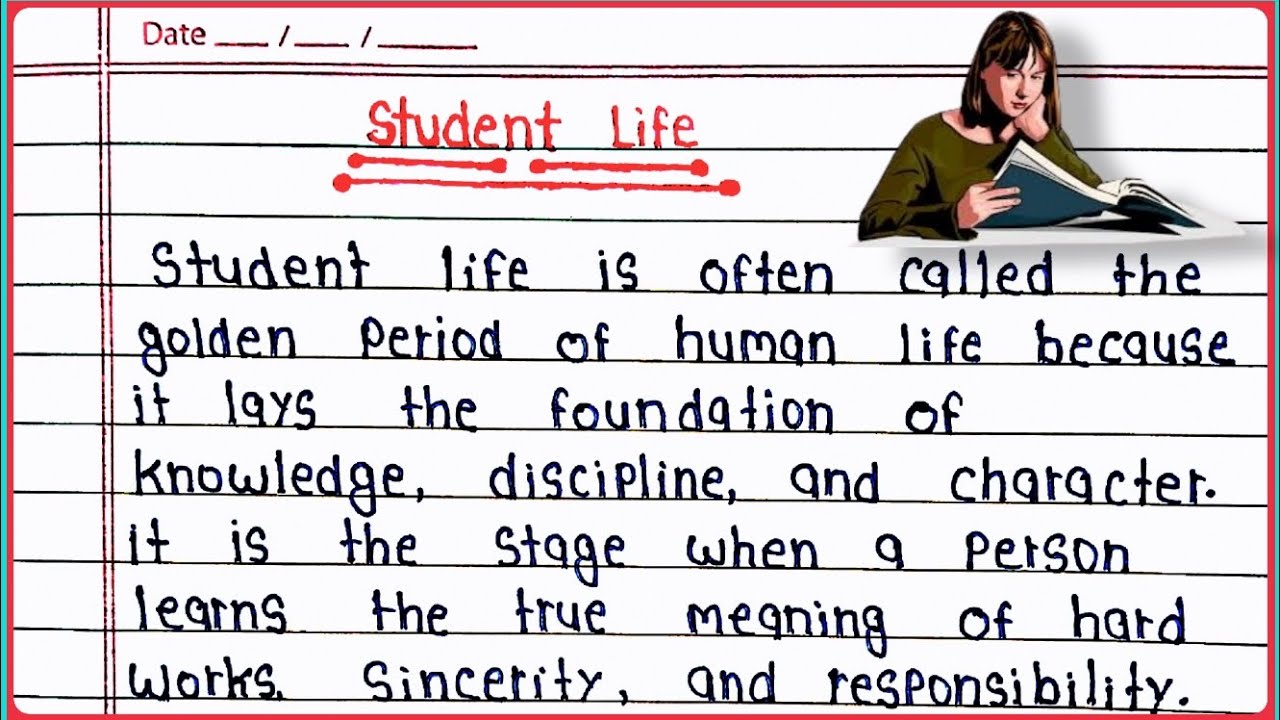 Date ___ / ___ / ______
Student Life
Student life is often called the
golden period of human life because
it lays the foundation of
knowledge, discipline, and character.
it is the stage when a person
learns the true meaning of hard
works, sincerity, and responsibility.